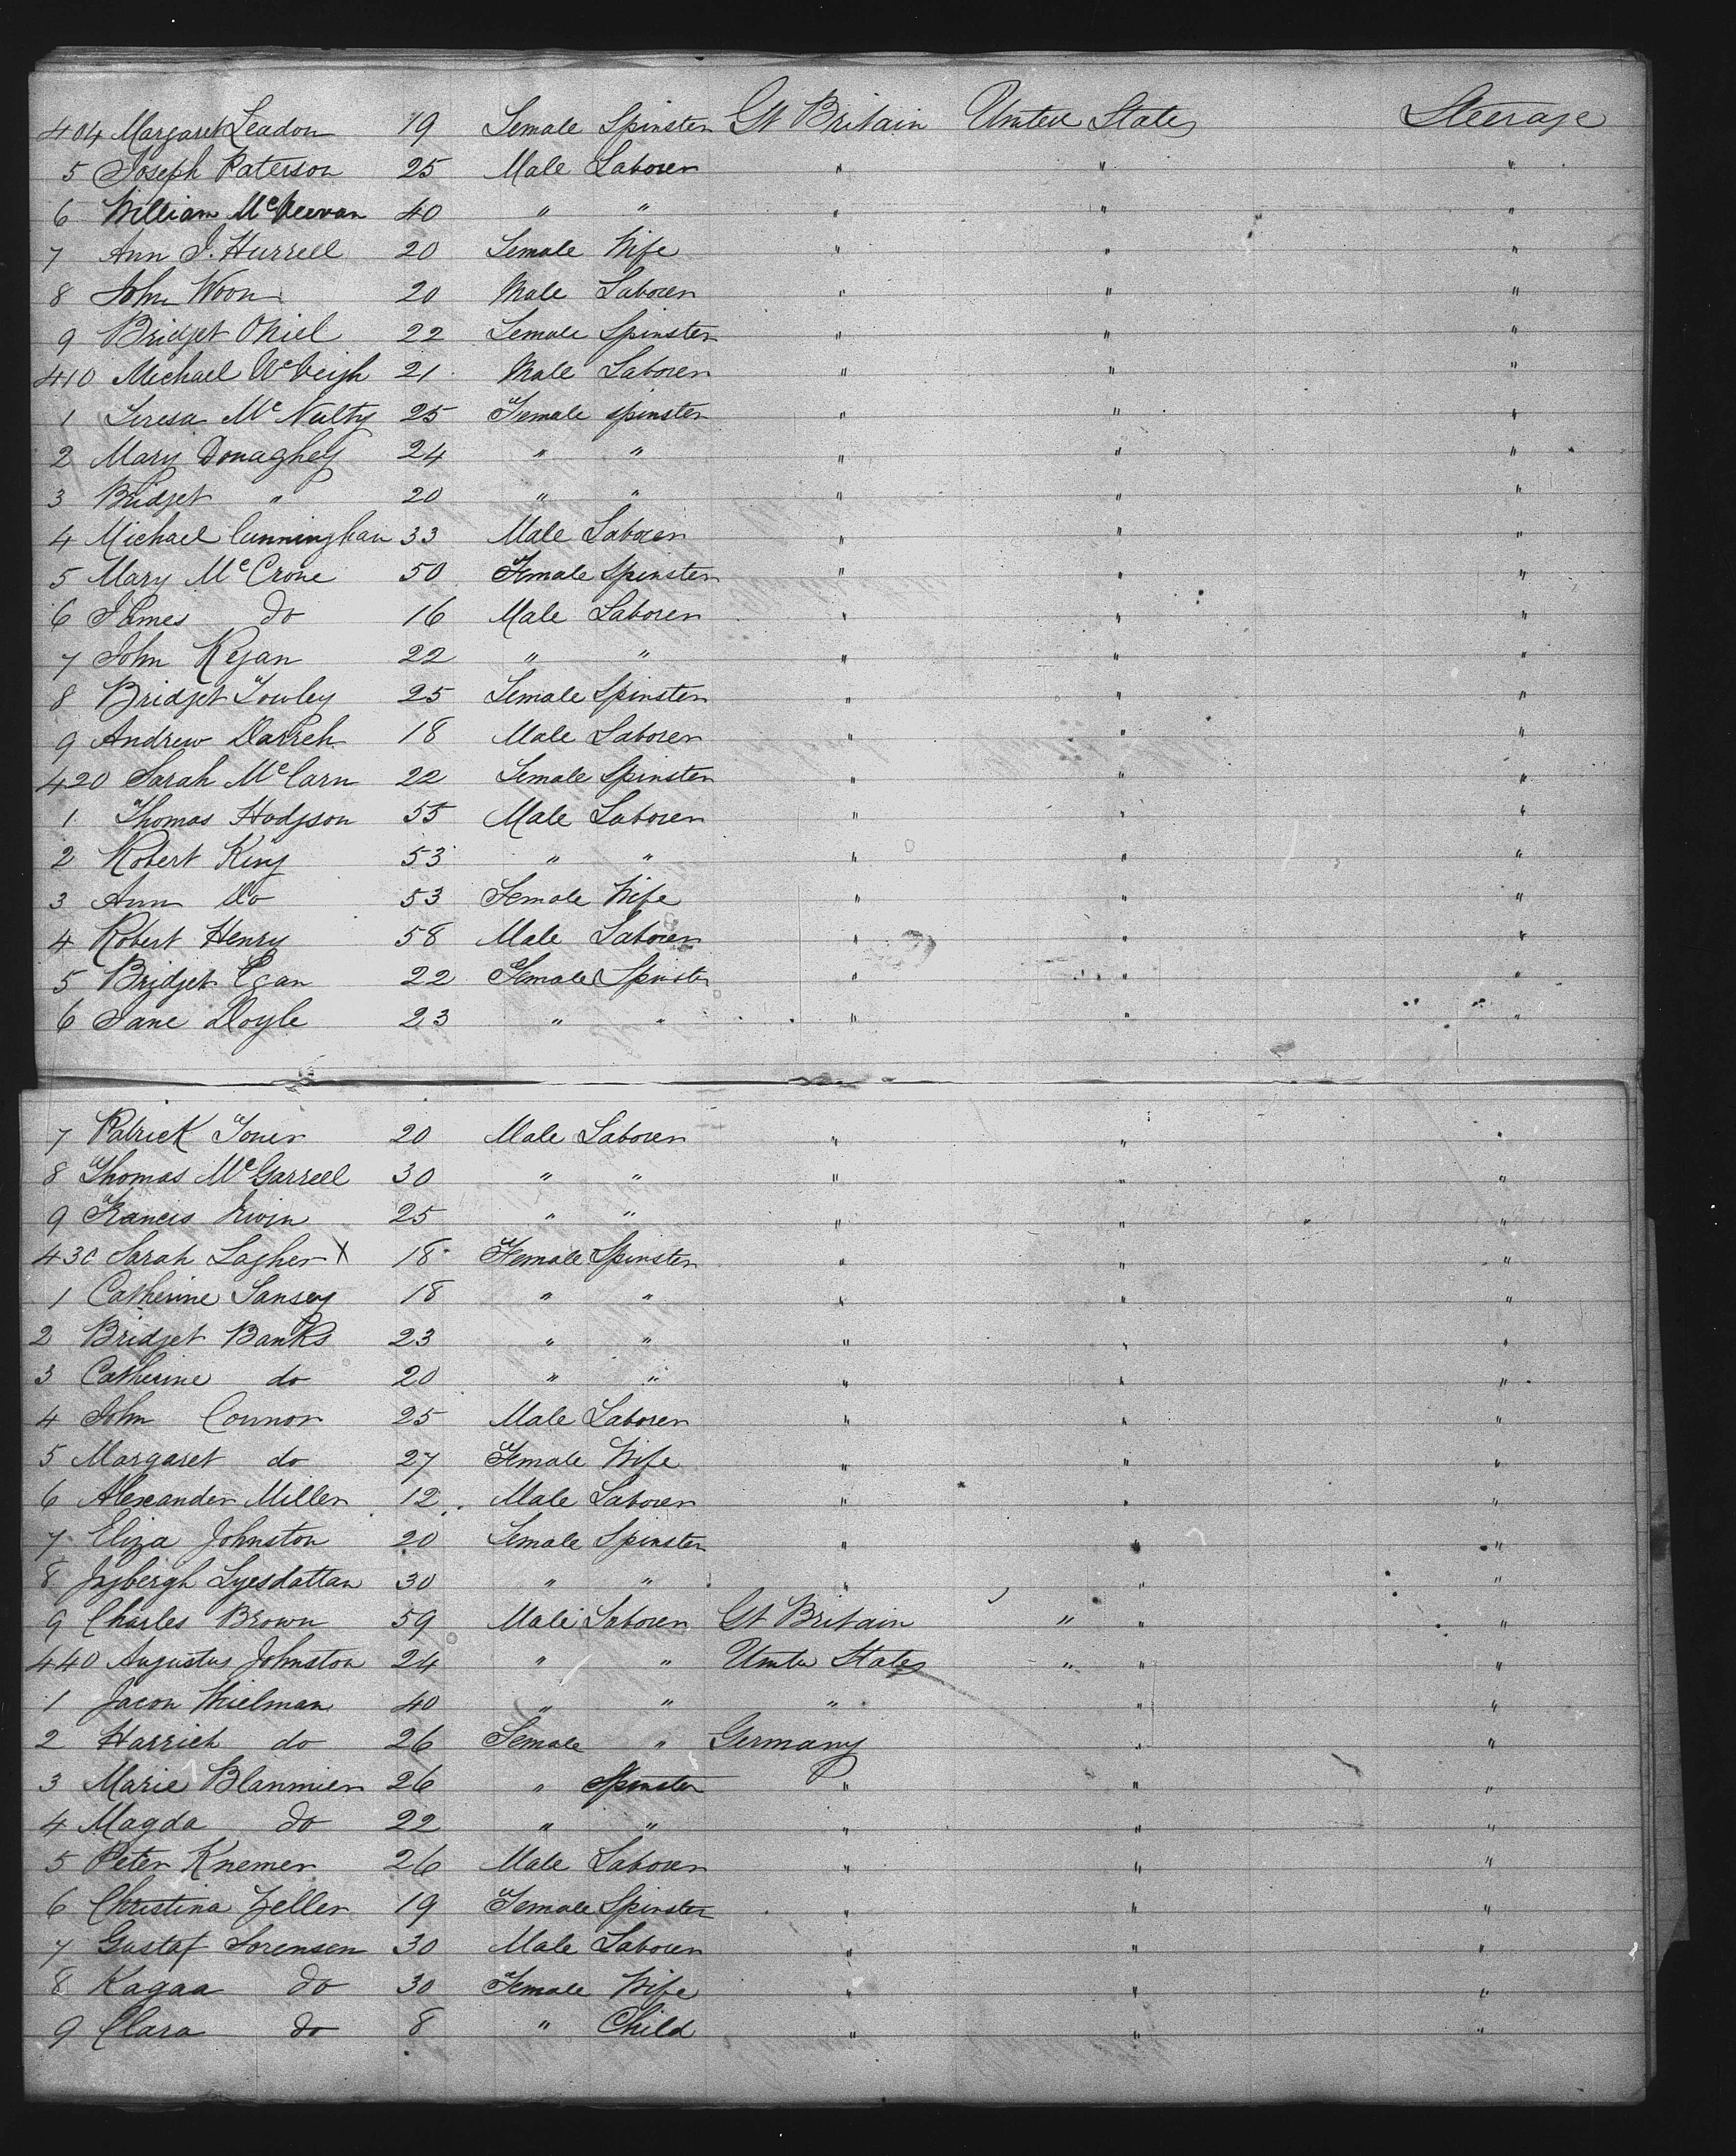 404 Margaret Leadon 19 Female Spinster Gt Britain United States Steerage
5 Joseph Paterson 25 Male Laborer " " "
6 William McKeevan 40 " " " " "
7 Ann J. Hurrell 20 Female Wife " " "
8 John Woon 20 Male Laborer " " "
9 Bridget Oniel 22 Female Spinster " " "
410 Michael McVeigh 21 Male Laborer " " "
1 Teresa McNulty 25 Female Spinster " " "
2 Mary Donaghey 24 " " " " "
3 Bridget " 20 " " " " "
4 Michael Cunningham 33 Male Laborer " " "
5 Mary McCrone 50 Female Spinster " " "
6 James do 16 Male Laborer " " "
7 John Regan 22 " " " " "
8 Bridget Towley 25 Female Spinster " " "
9 Andrew Darreh 18 Male Laborer " " "
420 Sarah McCarn 22 Female Spinster " " "
1 Thomas Hodgson 55 Male Laborer " " "
2 Robert King 53 " " " " "
3 Ann Do 53 Female Wife " " "
4 Robert Henry 58 Male Laborer " " "
5 Bridget Egan 22 Female Spinster " " "
6 Jane Doyle 23 " " " " "
7 Patrick 20 Male Laborer " " "
8 Thomas McGarrell 30 " " " " "
9 Francis Irwin 25 " " " " "
430 Sarah Lagher X 18 Female Spinster " " "
1 Catherine Tansey 18 " " " " "
2 Bridget Banks 23 " " " " "
3 Catherine do 20 " " " " "
4 John Connor 25 Male Laborer " " "
5 Margaret do 27 Female Wife " " "
6 Alexander Miller 12 Male Laborer " " "
7 Eliza Johnston 20 Female Spinster " " "
8 30 " " " " "
9 Charles Brown 59 Male Laborer Gt Britain " " "
440 Augustus Johnston 24 " " United States " " "
1 Jacon Thielman 40 " " " " "
2 Harrich do 26 Female " Germany " "
3 Marie Blanmier 26 " Spinster " " "
4 Magda do 22 " " " " "
5 Peter Knemer 26 Male Laborer " " "
6 Christina Zeller 19 Female Spinster " " "
7 Gustaf Sorensen 30 Male Laborer " " "
8 Kagaa do 30 Female Wife " " "
9 Clara do 8 " Child " " "